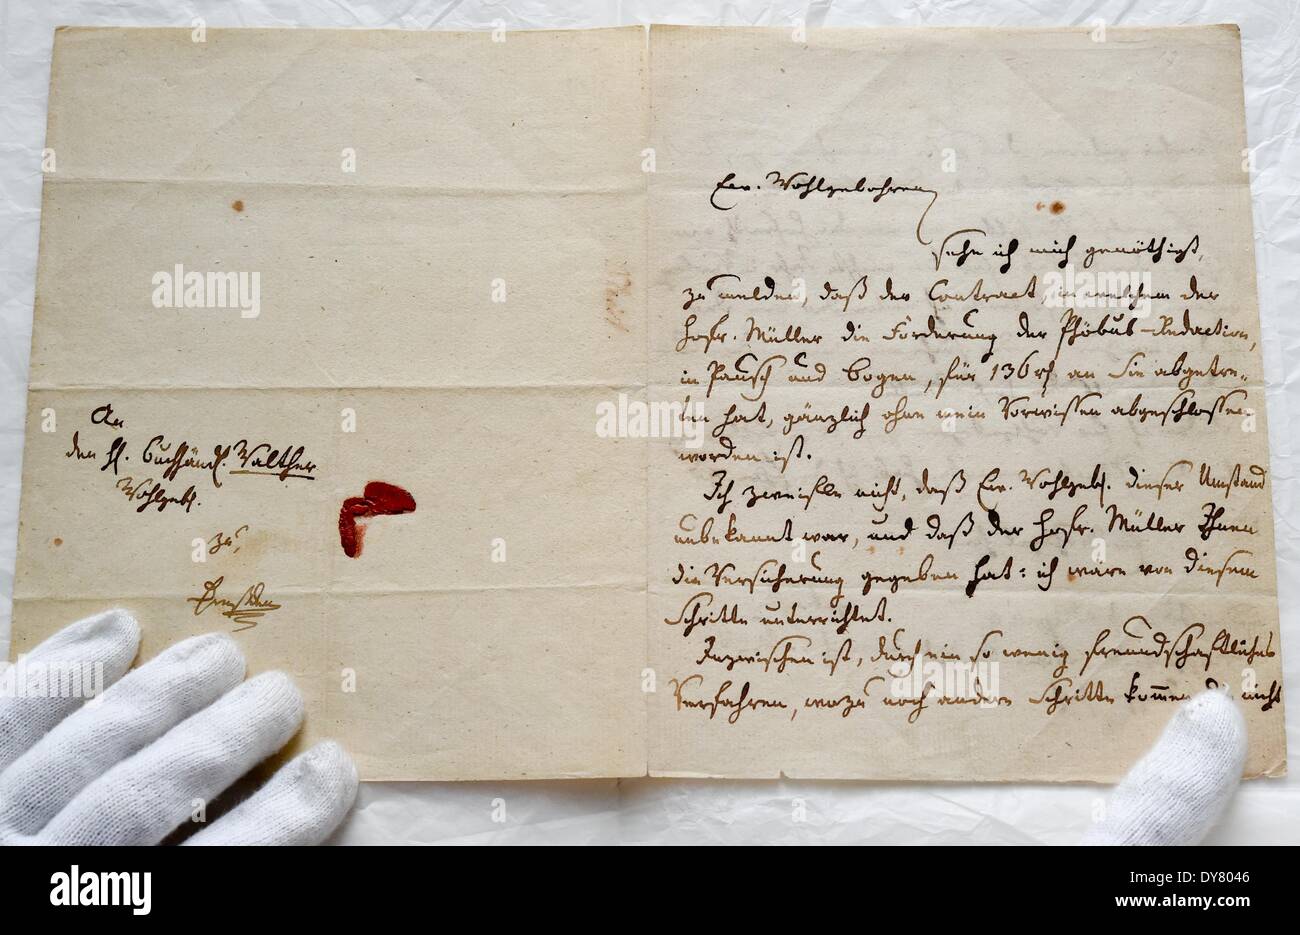 An
den H. Buchhändl. Walther
Wohlgeb.
zu
Dresden
Ew. Wohlgebohren
sehe ich mich genöthigt,
zu melden, daß der Contract, in welchem der
Hofr. Müller die Förderung der Phöbus-Redaction,
in Pausch und Bogen, für 136 rh an Sie abgetre-
ten hat, gänzlich ohne mein Vorwissen abgeschlossen
worden ist.
Ich zweifle nicht, daß Ew. Wohlgeb. dieser Umstand
unbekannt war, und daß der Hofr. Müller Ihnen
die Versicherung gegeben hat: ich wäre von diesem
Schritte unterrichtet.
Inzwischen ist, durch ein so wenig freundschaftliches
Verfahren, wozu noch andere Schritte kommen die nicht
alamy
Image ID: DY8046
www.alamy.com